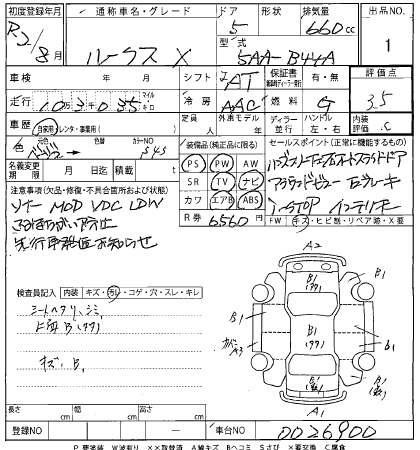 初度登録年月 通称車名・グレード ドア 形状 排気量 出品NO.
R3/8月 ルークス X 5 660cc 1
型式 5AA-B44A
車検 年 月 シフト AT 保証書 有・無 評価点
走行 10万3千035 マイル キロ 冷房 AAC 燃料 G 3.5
車歴 自家用 レンタ・事業用( ) 定員 人 外車モデル ディーラー 並行 ハンドル 左・右 内装評価 C
色 カラーNO
装備品(純正品に限る) セールスポイント(正常に機能するもの)
名義変更期限 月 日迄 積載量 t
PS PW AW
SR TV ナビ
カワ エアB ABS
R券 6560円
アラウンドビュー Eブレーキ
I-STOP インテリキー
FW キズ・ヒビ割・リペア跡・X要
注意事項(欠品・修復・不具合箇所および状態)
ソナー MOD VDC LDW
先行車発進お知らせ
検査員記入 内装 キズ・汚レ・コゲ・穴・スレ・キレ
シートヘタリ、シミ
キズ・B1
A2
B1
B1
B1
b1
A1
長さ cm 幅 cm 高さ cm
登録NO 車台NO 0026900
P要塗装 W波有り ××取替済 A線キズ Bヘコミ Sさび ×要交換 C腐食